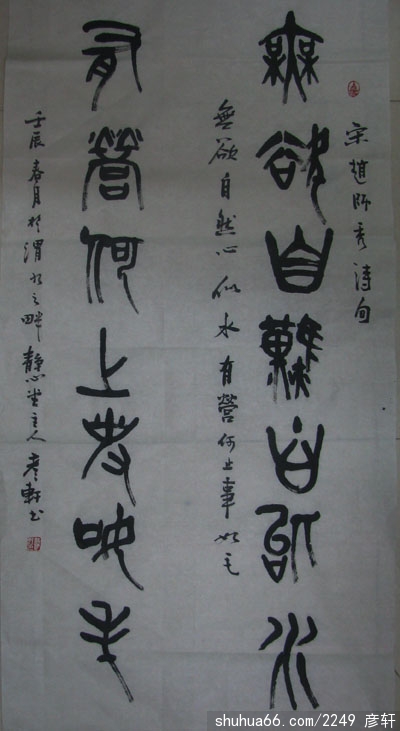 宋趙師秀詩句
無欲自然心似水
無欲自然心似水有營何止事如毛
有營何止事如毛
壬辰春月於渭水之畔靜心堂主人彥軒书
shuhua66.com/2249 彦轩